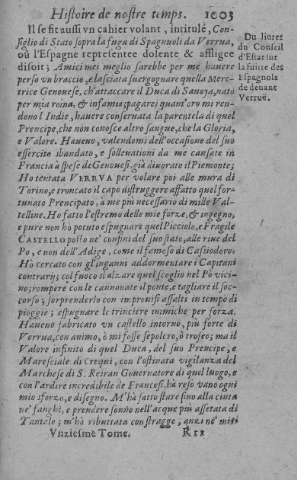 Histoire de nostre temps. 1003
Il se fit aussi vn cahier volant, intitulé, Con-
siglio di Stato sopra la fuga di Spagnuoli da Verrua,
où l'Espagne representee dolente & affligee
disoit; Amici miei meglio sarebbe per me hauere
perso vn braccio, e lasciata suergognare quella Mere-
trice Genouese, ch'attaccare il Duca di Sauoya, nato
per mia roina, & infamia; pagarei quant'oro mi ren-
dono l'Indie, hauere conseruata la parentela di quel
Prencipe, che non conosce altro sangue, che la Gloria,
e Valore. Haueuo, valendomi dell'occasione del suo
essercito sbandato, e solleuationi da me causate in
Francia à spese de Genouesi, già diuorate il Piemonte;
Ho tentata VERRVA per volare poi alle mura di
Torino, e troncato il capo distruggere affatto quel for-
tunato Prencipato, à me più necessario di mille Val-
telline. Ho fatto l'estremo delle mie forze, & ingegno,
e pure non hò potuto espugnare quel Picciolo, e Fragile
CASTELLO posto ne' confini del suo stato, alle riue del
Po, e non dell'Adige, come il famoso di Cassiodoro
Hò cercato con gl'inganni addormentare i Capitani
contrarij; col fuoco d'alzare quel scoglio nel Pò vici-
no; rompere con le cannonate il ponte, e tagliare il soc-
corso; sorprenderlo con improuisi assalti in tempo di
pioggie; espugnare le trinciere inimiche per forza.
Haueuo fabricato vn castello intorno, più forte di
Verrua, con animo, ò mi fosse sepolcro, ò trofeo; ma il
Valore infinito di quel Duca, del suo Prencipe, e
Maresciale di Crequi, con l'ostinata vigilanza del
Marchese di S. Reiran Gouernatore di quel luogo, e
con l'ardire incredibile de Francesi, hà reso vano ogni
mio sforzo, e disegno. M'hà fatto stare fino alla cinta
ne' fanghi, e prendere sonno nell'acque più assetata di
Tantalo; m'hà ributtata con stragge, quasi ne' miei
Vnziesme Tome. Rrr
Du liuret
du Conseil
d'Estat sur
la fuitte des
Espagnols
de deuant
Verruë.